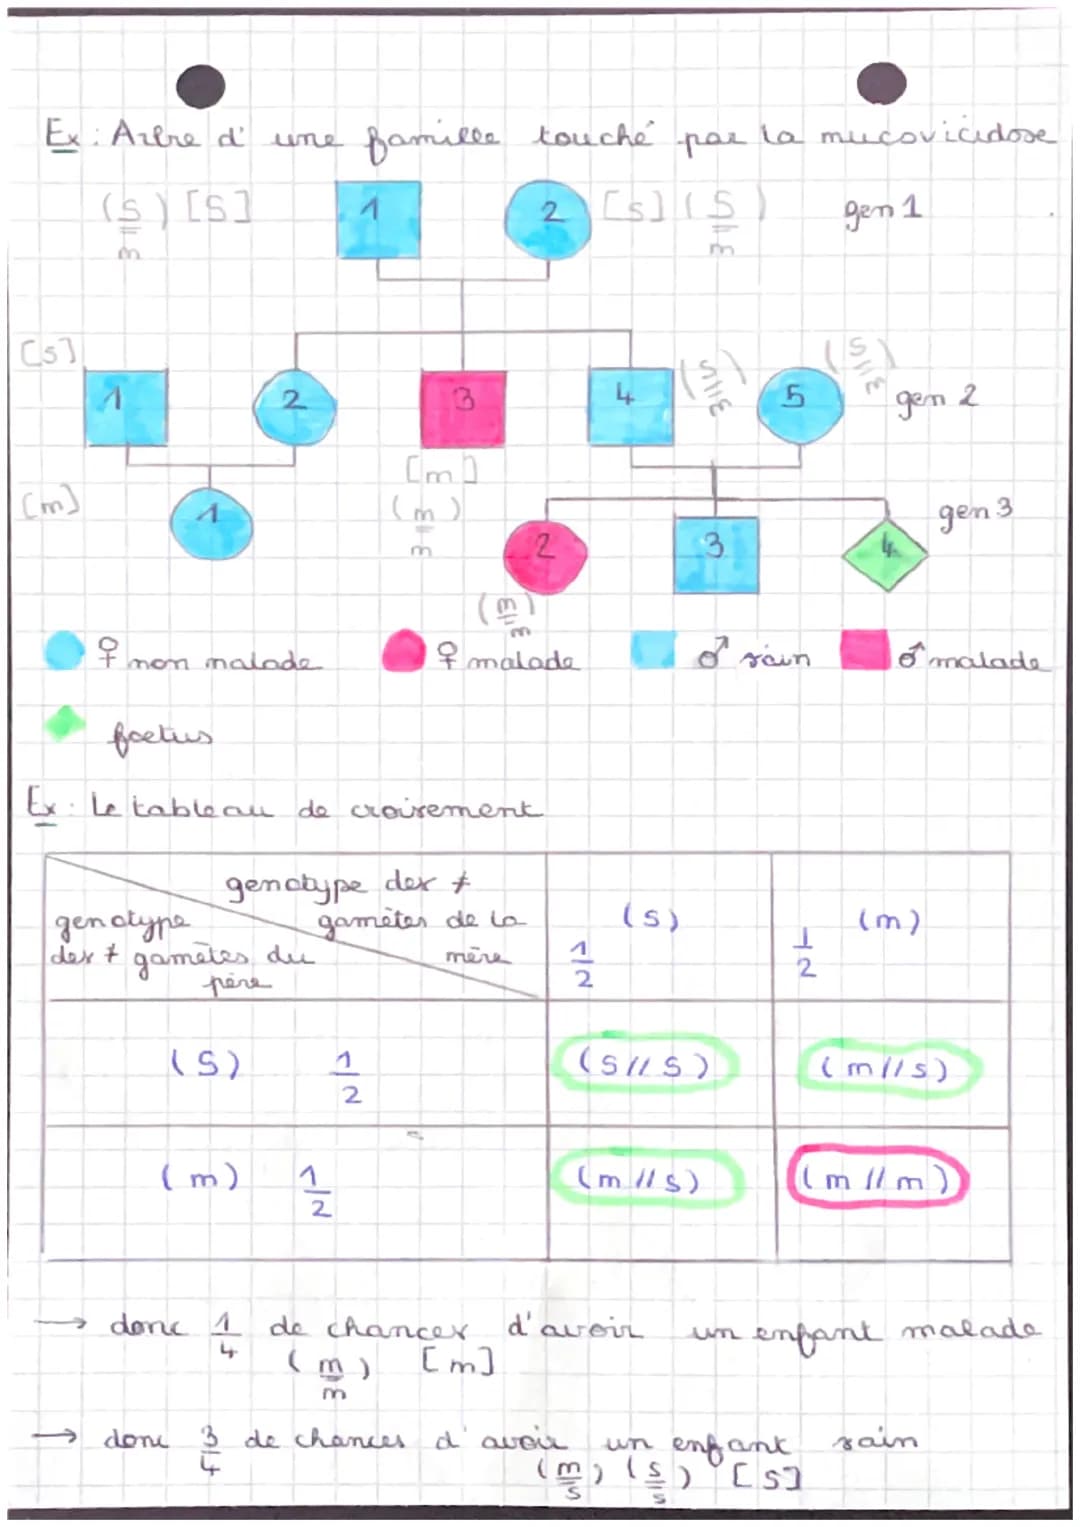 Ex : Arbre d' une famille touché par la mucovicidose
(S//m) [S] 1 2 [S] (S//m) gen 1
[S] 1 2 3 4 (S//m) 5 (S//m) gen 2
[m]
[m] (m//m)
1 2 3 4 gen 3
(m//m)
♀ non malade ♀ malade ♂ sain ♂ malade
foetus
Ex : Le tableau de croisement
genotype des ≠ gamètes de la mère
genotype des ≠ gamètes du père
(S) 1/2 (m) 1/2
(S) 1/2 (S//S) (m//S)
(m) 1/2 (m//S) (m//m)
→ donc 1/4 de chances d'avoir un enfant malade
(m//m) [m]
→ donc 3/4 de chances d'avoir un enfant sain
(m//S) (S//S) [S]